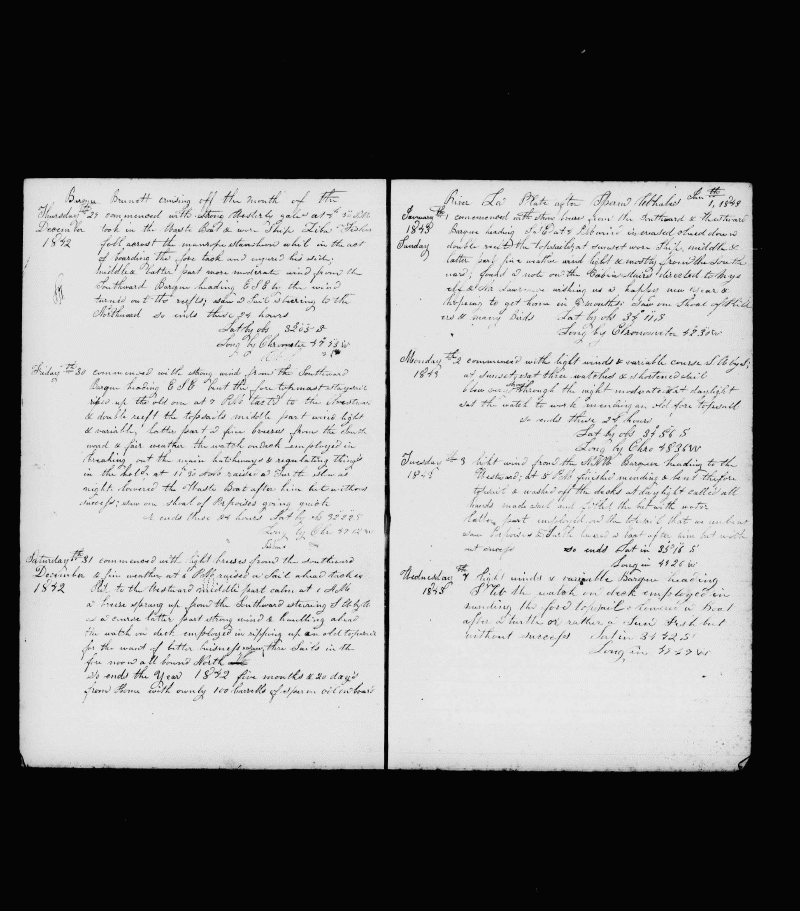 Barque Brunett cruising off the month of the
Thursday th 29 commenced with strong Westerly gale at
December took in the Waste Boat & wore Ship
1842 fell across the stanshion whil in the act
of boarding the fore tack and injured his side;
middle & latter part more moderate wind from the
Southward Barque heading E S E by the wind
turned out the reefs; saw 2 Sail steering to the
Northward so ends these 24 hours
Lat by obs
Long by Chronometer
Friday th 30 commenced with strong wind from the Southward
Barque heading E S E bent the fore topmast staysail
up the old one at 7 PM tack'd to the Westward
& double reeft the topsails middle part wind light
& variable, latter part a fine breeses from the South
ward & fair weather the watch on deck employed in
breaking out the main hatchways & regulating things
in the hold at 11 30 raised a Turtle
lowered the Waste Boat after him but without
success; saw on Shoal of Porpoises going quick
so ends these 24 hours Lat by obs
Long by Chr
Saturday th 31 commenced with light breses from the southward
December & fair weather at 6 PM raised a Sail ahead tack'd
1842 Ship to the Westward middle part calm at 4 AM
a breese sprang up from the Southward steering S W by W
as a course latter part strong wind & haulling ahead
the watch on deck employed in ripping up an old topsail
for the want of better buisness saw three Sails in the
fore noon all bound North
so ends the Year 1842 five months & 20 days
from Home with only 100 barrells of sperm oil on board
River La Plate after Sperm Whales Jan th 1, 1843
January th 1 commenced with strong breese from the Southward & Westward
1843 Barque heading
Sunday double reeft the topsails at sunset wore Ship, middle &
latter part fair weather wind light & mostly from the South
ward; found a note on the Cabin Stairs directed to
& Mr Lawrence wishing us a happy new year &
hopeing to get home in 8 months saw on Shoal of
& many birds Lat by obs
Long by Chronometer
Monday th 2 commenced with light winds & variable course S W by S;
1843 at sunset sat three watches & shortened sail
through the night moderate at daylight
sat the watch to work mending an old fore topsail
so ends these 24 hours
Lat by obs 34 56 S
Long by Chro 48 36 W
Tuesday th 3 light wind from the Barque heading to the
1843 Westward; at 5 PM finished mending & bent the fore
topsail & washed off the decks at daylight called all
hands made sail and filled the but with water
latter part employed on the topsail that we unbent
saw Porpoises & Turtle lowered a boat after him but with
out success so ends Lat in 35 16 S
Long in 49 26 W
Wednesday th 4 light winds & variable Barque heading
1843 S W the watch on deck employed in
mending the fore topsail & lowered a Boat
after a turtle or rather a Sun Fish but
without success Lat in 34 42 S
Long in 47 47 W